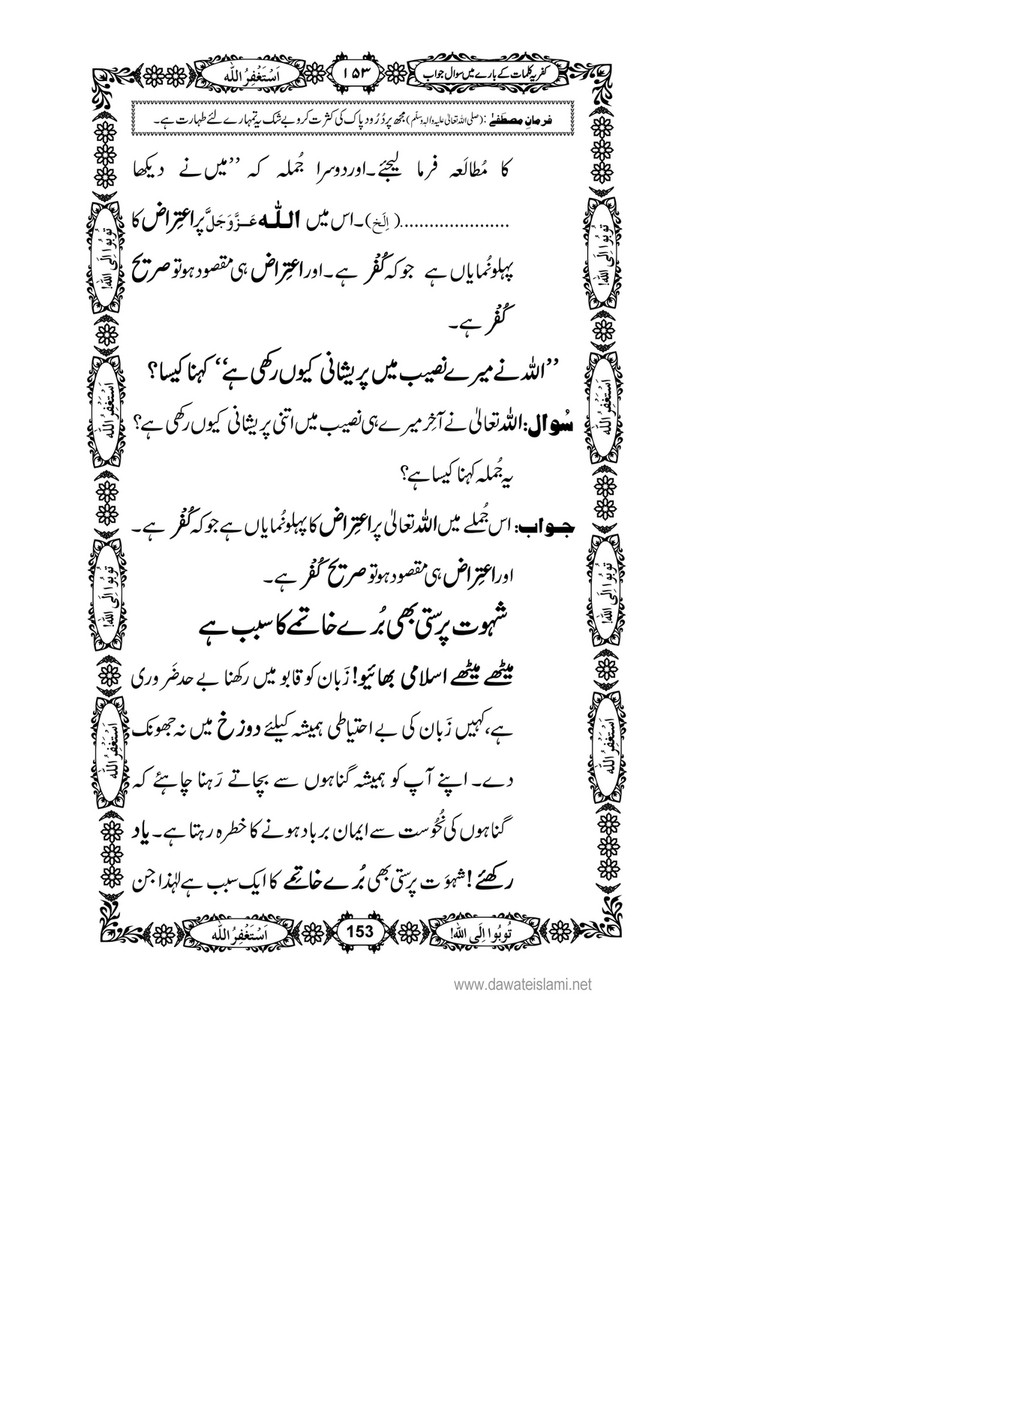 کفریہ کلمات کے بارے میں سوال جواب
۱۵۳
اَسْتَغْفِرُ اللّٰه
فرمانِ مصطفےٰ: (صلی اللہ تعالیٰ علیہ والہٖ وسلّم) مجھ پر دُرُود پاک کی کثرت کرو بے شک یہ تمہارے لئے طہارت ہے۔
کا مُطالَعہ فرما لیجئے۔ اور دوسرا جُملہ کہ ’’میں نے دیکھا
......................(اِلَخ)۔ اس میں اللّٰہ عَزَّوَجَلَّ پر اعتِراض کا
پہلو نُمایاں ہے جو کہ کُفْر ہے۔ اور اعتِراض ہی مقصود ہو تو صریح
کُفْر ہے۔
’’اللہ نے میرے نصیب میں پریشانی کیوں رکھی ہے‘‘ کہنا کیسا؟
سُوال: اللہ تعالیٰ نے آخِر میرے ہی نصیب میں اتنی پریشانی کیوں رکھی ہے؟
یہ جُملہ کہنا کیسا ہے؟
جواب: اس جُملے میں اللہ تعالیٰ پر اعتِراض کا پہلو نُمایاں ہے جو کہ کُفْر ہے۔
اور اعتِراض ہی مقصود ہو تو صریح کُفْر ہے۔
شہوت پرستی بھی بُرے خاتمے کا سبب ہے
میٹھے میٹھے اسلامی بھائیو! زَبان کو قابو میں رکھنا بے حد ضَروری
ہے، کہیں زَبان کی بے احتیاطی ہمیشہ کیلئے دوزخ میں نہ جھونک
دے۔ اپنے آپ کو ہمیشہ گناہوں سے بچاتے رَہنا چاہئے کہ
گناہوں کی نُحُوست سے ایمان برباد ہونے کا خطرہ رہتا ہے۔ یاد
رکھئے! شہوَت پرستی بھی بُرے خاتِمے کا ایک سبب ہے لہٰذا جن
تُوبُوا اِلَی اللّٰه!
اَسْتَغْفِرُ اللّٰه
تُوبُوا اِلَی اللّٰه!
اَسْتَغْفِرُ اللّٰه
تُوبُوا اِلَی اللّٰه!
اَسْتَغْفِرُ اللّٰه
تُوبُوا اِلَی اللّٰه!
اَسْتَغْفِرُ اللّٰه
تُوبُوا اِلَی اللّٰه!
153
اَسْتَغْفِرُ اللّٰه
www.dawateislami.net